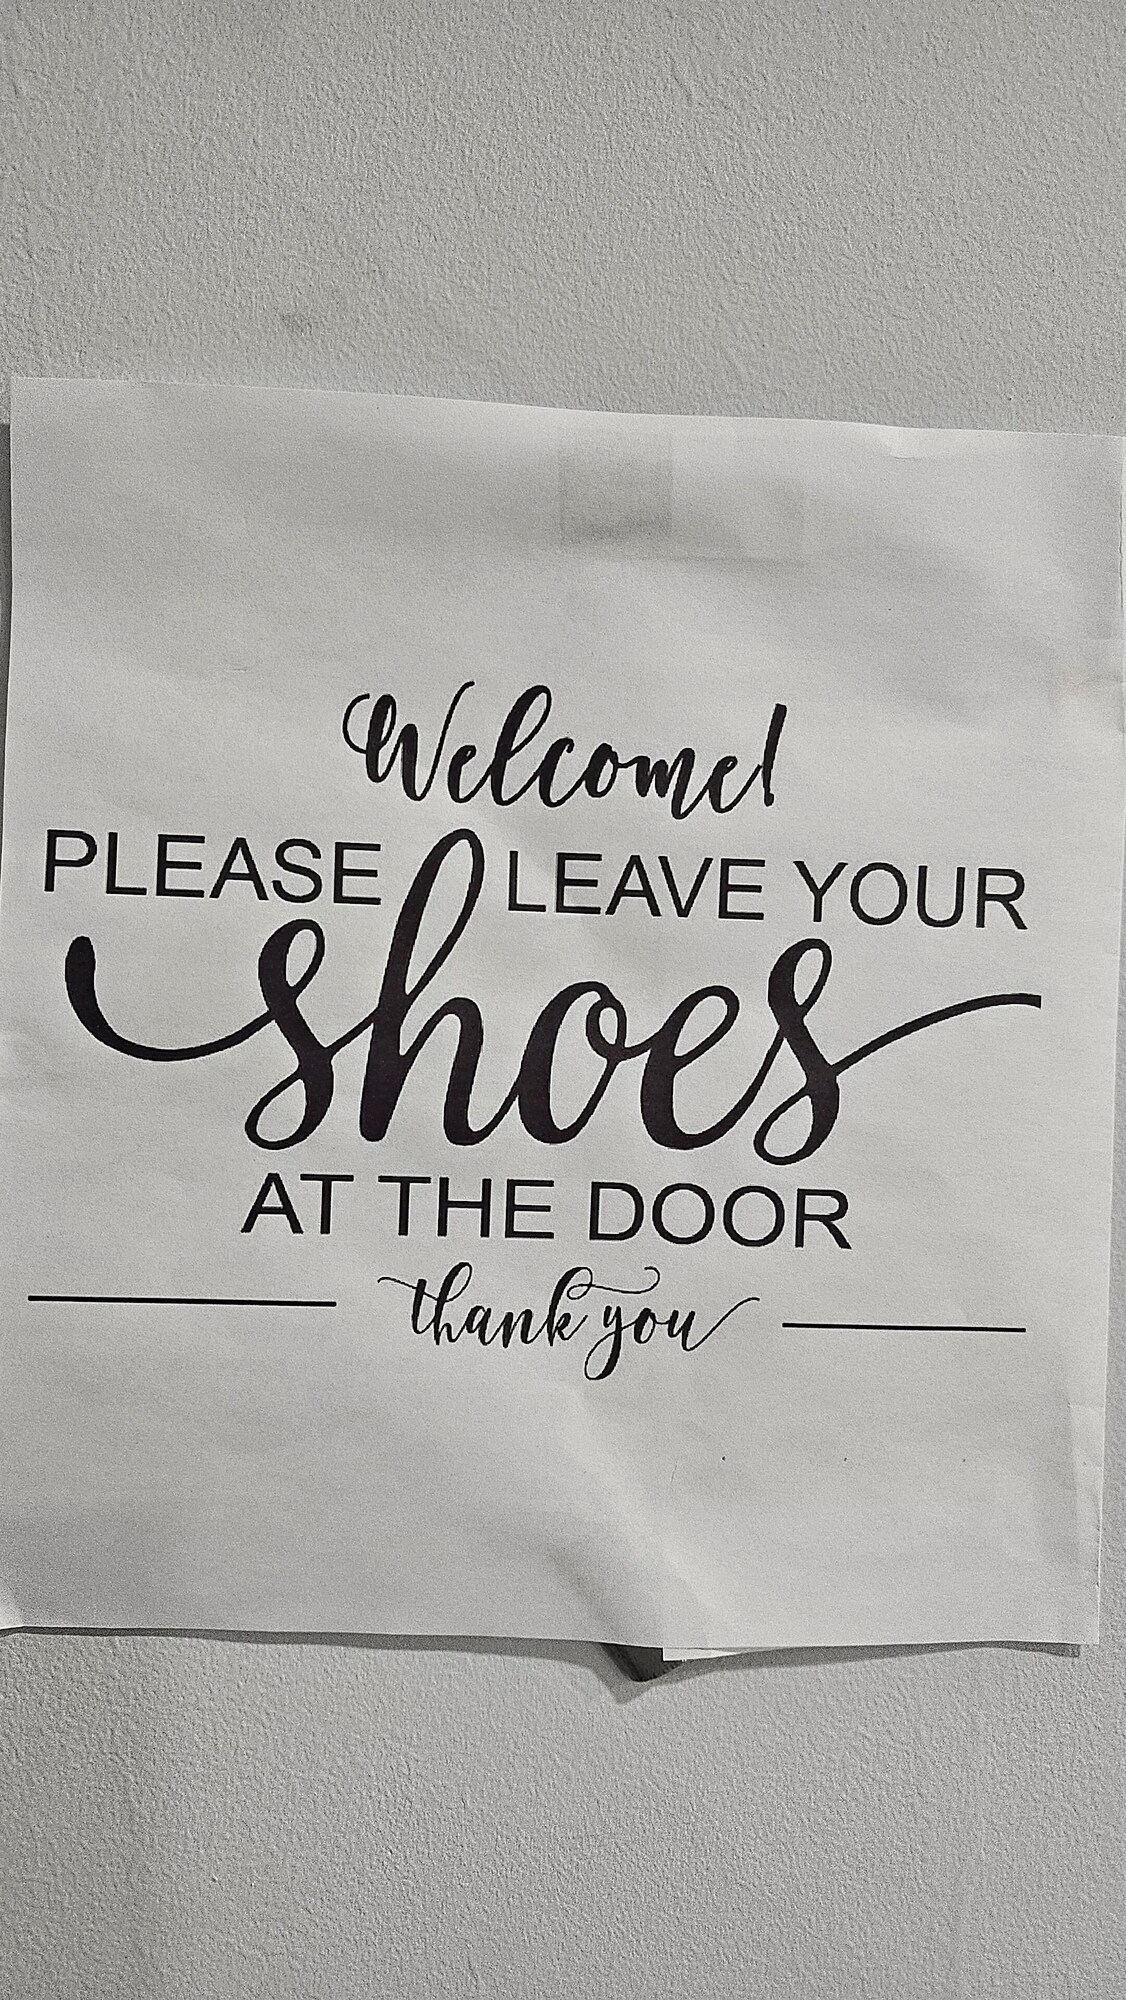 Welcome!
PLEASE LEAVE YOUR
shoes
AT THE DOOR
thank you